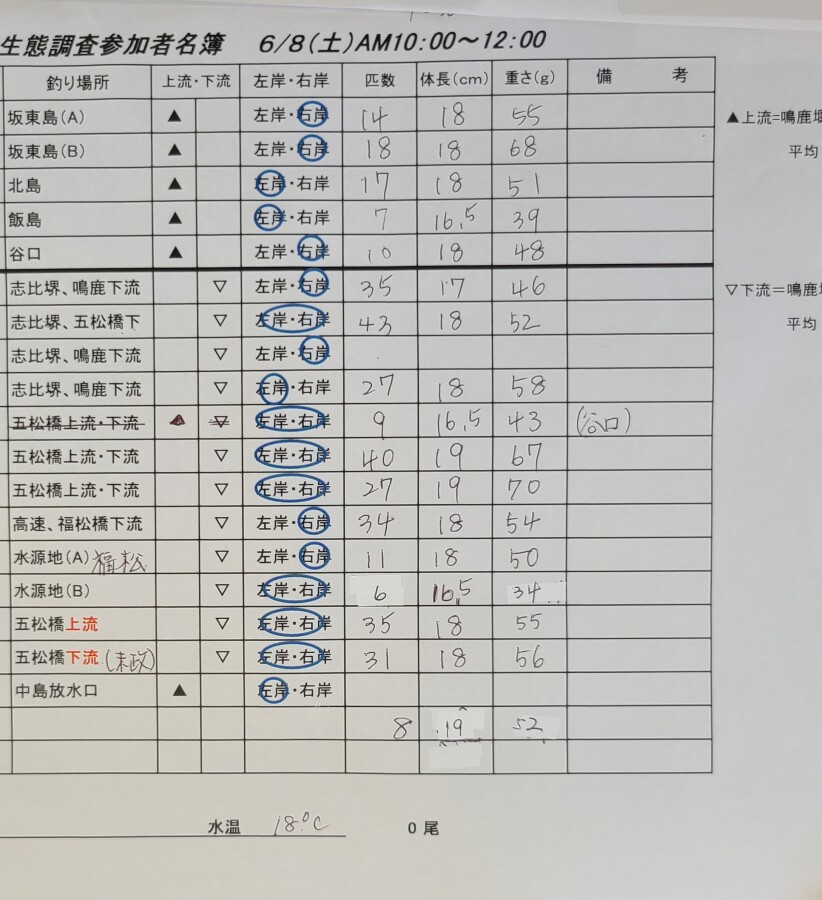 生態調査参加者名簿 6/8(土)AM10:00～12:00
釣り場所 上流・下流 左岸・右岸 匹数 体長(cm) 重さ(g) 備 考
坂東島(A) ▲ 左岸・右岸 14 18 55
▲上流=鳴鹿堰
坂東島(B) ▲ 左岸・右岸 18 18 68
平均
北島 ▲ 左岸・右岸 17 18 51
飯島 ▲ 左岸・右岸 7 16.5 39
谷口 ▲ 左岸・右岸 10 18 48
志比堺、鳴鹿下流 ▽ 左岸・右岸 35 17 46
▽下流＝鳴鹿堰
志比堺、五松橋下 ▽ 左岸・右岸 43 18 52
平均
志比堺、鳴鹿下流 ▽ 左岸・右岸
志比堺、鳴鹿下流 ▽ 左岸・右岸 27 18 58
五松橋上流・下流 ▲ ▽ 左岸・右岸 9 16.5 43 (谷口)
五松橋上流・下流 ▽ 左岸・右岸 40 19 67
五松橋上流・下流 ▽ 左岸・右岸 27 19 70
高速、福松橋下流 ▽ 左岸・右岸 34 18 54
水源地(A) 福松 ▽ 左岸・右岸 11 18 50
水源地(B) ▽ 左岸・右岸 6 16.5 34
五松橋上流 ▽ 左岸・右岸 35 18 55
五松橋下流 (末政) ▽ 左岸・右岸 31 18 56
中島放水口 ▲ 左岸・右岸
8 19 52
水温 18.0℃ 0 尾